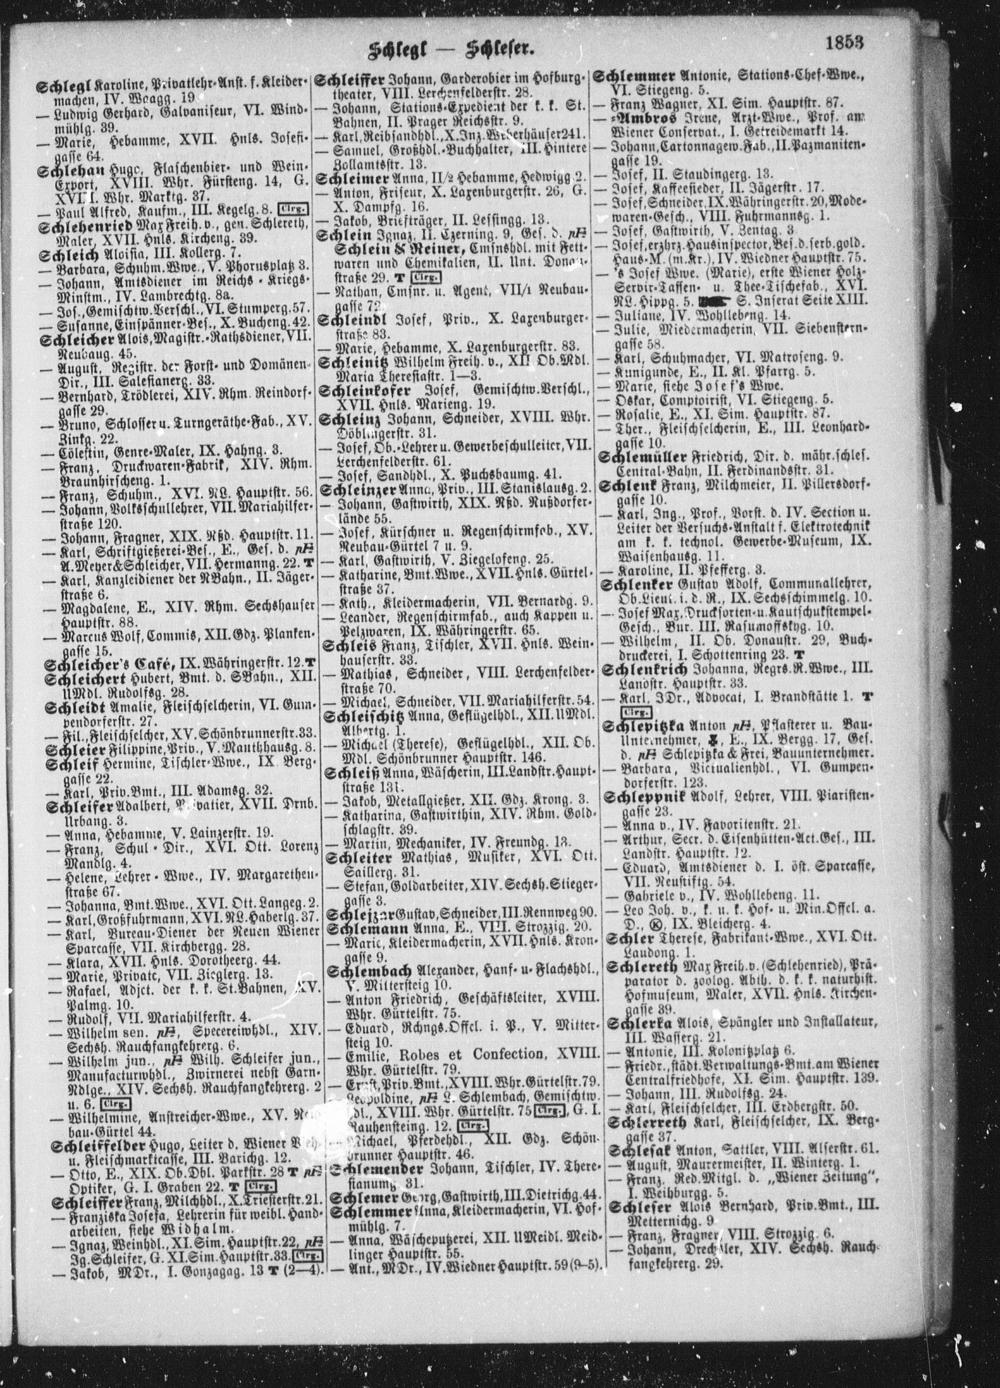 Schlegl — Schleser.
1853
Schlegl Karoline, Privatlehr-Anst. f. Kleider-
machen, IV. Waagg. 19
— Ludwig Gerhard, Galvaniseur, VI. Wind-
mühlg. 39.
— Marie, Hebamme, XVII. Hnls. Josefi-
gasse 64.
Schlehan Hugo, Flaschenbier- und Wein-
Export, XVIII. Whr. Fürsteng. 14, G.
XVIII. Whr. Marktg. 37.
— Paul Alfred, Kaufm., III. Kegelg. 8. Clrg.
Schlehenried Max Freih. v., gen. Schlereth,
Maler, XVII. Hnls. Kircheng. 39.
Schleich Aloisia, III. Kollerg. 7.
— Barbara, Schuhm.Wwe., V. Phorusplatz 3.
— Johann, Amtsdiener im Reichs-Kriegs-
Minstm., IV. Lambrechtg. 8a.
— Jos., Gemischtw. Verschl., VI. Stumperg. 57.
— Susanne, Einspänner-Bes., X. Bucheng. 42.
Schleicher Alois, Magistr.-Rathsdiener, VII.
Neubaug. 45.
— August, Registr. der Forst- und Domänen-
Dir., III. Salesianerg. 33.
— Bernhard, Trödlerei, XIV. Rhm. Reindorf-
gasse 29.
— Bruno, Schlosser u. Turngeräthe-Fab., XV.
Zinkg. 22.
— Cölestin, Genre-Maler, IX. Hahng. 3.
— Franz, Druckwaren-Fabrik, XIV. Rhm.
Braunhirscheng. 1.
— Franz, Schuhm., XVI. NL. Hauptstr. 56.
— Johann, Volksschullehrer, VII. Mariahilfer-
straße 120.
— Johann, Fragner, XIX. Nßd. Hauptstr. 11.
— Karl, Schriftgießerei-Bes., E., Ges. d. pH
A. Meyer & Schleicher, VII. Hermanng. 22. T
— Karl, Kanzleidiener der NBahn., II. Jäger-
straße 6.
— Magdalene, E., XIV. Rhm. Sechshauser
Hauptstr. 88.
— Marcus Wolf, Commis, XII. Gdz. Planken-
gasse 15.
Schleicher's Café, IX. Währingerstr. 12. T
Schleichert Hubert, Bmt. d. SBahn., XII.
UMdl. Rudolfsg. 28.
Schleidt Amalie, Fleischselcherin, VI. Gum-
pendorferstr. 27.
— Fil., Fleischselcher, XV. Schönbrunnerstr. 33.
Schleier Filippine, Priv., V. Mauthhausg. 8.
Schleif Hermine, Tischler-Wwe., IX Berg-
gasse 22.
— Karl, Priv. Bmt., III. Adamsg. 32.
Schleifer Adalbert, Privatier, XVII. Drnb.
Urbang. 3.
— Anna, Hebamme, V. Lainzerstr. 19.
— Franz, Schul-Dir., XVI. Ott. Lorenz
Mandlg. 4.
— Helene, Lehrer-Wwe., IV. Margarethen-
straße 67.
— Johanna, Bmt.Wwe., XVI. Ott. Langeg. 2.
— Karl, Großfuhrmann, XVI. NL. Haberlg. 37.
— Karl, Bureau-Diener der Neuen Wiener
Sparcasse, VII. Kirchbergg. 28.
— Klara, XVII. Hnls. Dorotheerg. 44.
— Marie, Private, VII. Zieglerg. 13.
— Rafael, Adjct. der k. k. St.Bahnen, XV.
Palmg. 10.
— Rudolf, VII. Mariahilferstr. 4.
— Wilhelm sen. pH, Specereiwhdl., XIV.
Sechsh. Rauchfangkehrerg. 6.
— Wilhelm jun., pH Wilh. Schleifer jun.,
Manufacturwhdl., Zwirnerei nebst Garn-
Ndlge., XIV. Sechsh. Rauchfangkehrerg. 2
u. 6. Clrg.
— Wilhelmine, Anstreicher-Wwe., XV. Neu-
bau-Gürtel 44.
Schleiffelder Hugo, Leiter d. Wiener Vieh-
u. Fleischmarktcasse, III. Barichg. 12.
— Otto, E., XIX. Ob. Dbl. Parkstr. 28 T pH
Optiker, G. I. Graben 22. T Clrg.
Schleiffer Franz, Milchhdl., X. Triesterstr. 21.
— Franziska Josefa, Lehrerin für weibl. Hand-
arbeiten, siehe Widhalm.
— Ignaz, Weinhdl., XI. Sim. Hauptstr. 22, pH
Jg. Schleifer, G. XI. Sim. Hauptstr. 33. Clrg.
— Jakob, MDr., I. Gonzagag. 13 T (2—4).
Schleiffer Johann, Garderobier im Hofburg-
theater, VIII. Lerchenfelderstr. 28.
— Johann, Stations-Expedient der k. k. St.
Bahnen, II. Prager Reichsstr. 9.
— Karl, Reibsandhdl., X. Inz. Weberhäuser 241.
— Samuel, Großhdl.-Buchhalter, III. Hintere
Zollamtsstr. 13.
Schleimer Anna, II/2 Hebamme, Hedwigg 2.
— Anton, Friseur, X. Laxenburgerstr. 26, G.
X. Dampfg. 16.
— Jakob, Briefträger, II. Lessingg. 13.
Schlein Ignaz, II. Czerning. 9, Ges. d. pH
Schlein & Reiner, Cmsnshdl. mit Fett-
waren und Chemikalien, II. Unt. Donau-
straße 29. T Clrg.
— Nathan, Cmsnr. u. Agent, VII/1 Neubau-
gasse 72
Schleindl Josef, Priv., X. Laxenburger-
straße 83.
— Marie, Hebamme, X. Laxenburgerstr. 83.
Schleinitz Wilhelm Freih. v., XII Ob. Mdl.
Maria Theresiastr. 1—3.
Schleinkofer Josef, Gemischtw. Verschl.,
XVII. Hnls. Marieng. 19.
Schleinz Johann, Schneider, XVIII. Whr.
Döblingerstr. 31.
— Josef, Ob.-Lehrer u. Gewerbeschulleiter, VII.
Lerchenfelderstr. 61.
— Josef, Sandhdl., X. Puchsbaumg. 41.
Schleinzer Anna, Priv., III. Stanislausg. 2.
— Johann, Gastwirth, XIX. Nßd. Nußdorfer-
lände 55.
— Josef, Kürschner u. Regenschirmfab., XV.
Neubau-Gürtel 7 u. 9.
— Karl, Gastwirth, V. Ziegelofeng. 25.
— Katharine, Bmt.Wwe., XVII. Hnls. Gürtel-
straße 37.
— Kath., Kleidermacherin, VII. Bernardg. 9.
— Leander, Regenschirmfab., auch Kappen u.
Pelzwaren, IX. Währingerstr. 65.
Schleis Franz, Tischler, XVII. Hnls. Wein-
hauserstr. 33.
— Mathias, Schneider, VIII. Lerchenfelder-
straße 70.
— Michael, Schneider, VII. Mariahilferstr. 54.
Schleischitz Anna, Geflügelhdl., XII. UMdl.
Albertg. 1.
— Michael (Therese), Geflügelhdl., XII. Ob.
Mdl. Schönbrunner Hauptstr. 146.
Schleiß Anna, Wäscherin, III. Landstr. Haupt-
straße 131.
— Jakob, Metallgießer, XII. Gdz. Krong. 3.
— Katharina, Gastwirthin, XIV. Rhm. Gold-
schlagstr. 39.
— Martin, Mechaniker, IV. Freundg. 13.
Schleiter Mathias, Musiker, XVI. Ott.
Saillerg. 31.
— Stefan, Goldarbeiter, XIV. Sechsh. Stieger-
gasse 3.
Gustav, Schneider, III. Rennweg 90.
Schlemann Anna, E., VIII. Strozzig. 20.
— Marie, Kleidermacherin, XVII. Hnls. Kron-
gasse 9.
Schlembach Alexander, Hanf- u. Flachshdl.,
V. Mittersteig 10.
— Anton Friedrich, Geschäftsleiter, XVIII.
Whr. Gürtelstr. 75.
— Eduard, Rchngs.Offcl. i. P., V. Mitter-
steig 10.
— Emilie, Robes et Confection, XVIII.
Whr. Gürtelstr. 79.
— Ernst, Priv. Bmt., XVIII. Whr. Gürtelstr. 79.
— Leopoldine, pH L. Schlembach, Gemischtw.
hdl., XVIII. Whr. Gürtelstr. 75 Clrg., G. I.
Rauhensteing. 12. Clrg.
— Michael, Pferdehdl., XII. Gdz. Schön-
brunner Hauptstr. 46.
Schlemender Johann, Tischler, IV. There-
sianumg. 31.
Schlemer Georg, Gastwirth, III. Dietrichg. 44.
Schlemmer Anna, Kleidermacherin, VI. Hof-
mühlg. 7.
— Anna, Wäscheputzerei, XII. UMeidl. Meid-
linger Hauptstr. 55.
— Ant., MDr., IV. Wiedner Hauptstr. 59 (9-5).
Schlemmer Antonie, Stations-Chef-Wwe.,
VI. Stiegeng. 5.
— Franz Wagner, XI. Sim. Hauptstr. 87.
— -Ambros Irene, Arzt-Wwe., Prof. am
Wiener Conservat., I. Getreidemarkt 14.
— Johann, Cartonnagew. Fab., II. Pazmaniten-
gasse 19.
— Josef, II. Staudingerg. 13.
— Josef, Kaffeesieder, II. Jägerstr. 17.
— Josef, Schneider, IX. Währingerstr. 20, Mode-
waren-Gesch., VIII. Fuhrmannsg. 1.
— Josef, Gastwirth, V. Zentag. 3
— Josef, erzhrz. Hausinspector, Bes. d. serb. gold.
Haus-M. (m. Kr.), IV. Wiedner Hauptstr. 75.
— 's Josef Wwe. (Marie), erste Wiener Holz-
Servir-Tassen- u. Thee-Tischefab., XVI.
NL. Hippg. 5. S. Inserat Seite XIII.
— Juliane, IV. Wohllebeng. 14.
— Julie, Miedermacherin, VII. Siebenstern-
gasse 58.
— Karl, Schuhmacher, VI. Matroseng. 9.
— Kunigunde, E., II. Kl. Pfarrg. 5.
— Marie, siehe Josef's Wwe.
— Oskar, Comptoirist, VI. Stiegeng. 5.
— Rosalie, E., XI. Sim. Hauptstr. 87.
— Ther., Fleischselcherin, E., III. Leonhard-
gasse 10.
Schlemüller Friedrich, Dir. d. mähr. schles.
Central-Bahn, II. Ferdinandsstr. 31.
Schlenk Franz, Milchmeier, II. Pillersdorf-
gasse 10.
— Karl, Ing., Prof., Vorst. d. IV. Section u.
Leiter der Versuchs-Anstalt f. Elektrotechnik
am k. k. technol. Gewerbe-Museum, IX.
Waisenhausg. 11.
— Karoline, II. Pfefferg. 3.
Schlenker Gustav Adolf, Communallehrer,
Ob. Lieut. i. d. R., IX. Sechsschimmelg. 10.
— Josef Max, Drucksorten- u. Kautschukstempel-
Gesch., Bur. III. Rasumoffskyg. 10.
— Wilhelm, II. Ob. Donaustr. 29, Buch-
druckerei, I. Schottenring 23. T
Schlenkrich Johanna, Regrs.R. Wwe., III.
Landstr. Hauptstr. 33.
— Karl, JDr., Advocat, I. Brandstätte 1. T
Clrg.
Schlepitzka Anton pH, Pflasterer u. Bau-
Unternehmer, E., IX. Bergg. 17, Ges.
d. pH Schlepitzka & Frei, Bauunternehmer.
— Barbara, Victualienhdl., VI. Gumpen-
dorferstr. 123.
Schleppnik Adolf, Lehrer, VIII. Piaristen-
gasse 23.
— Anna v., IV. Favoritenstr. 21.
— Arthur, Secr. d. Eisenhütten-Act.Ges., III.
Landstr. Hauptstr. 12.
— Eduard, Amtsdiener d. I öst. Sparcasse,
VII. Neustiftg. 54.
— Gabriele v., IV. Wohllebeng. 11.
— Leo Joh. v., k. u. k. Hof- u. Min. Offcl. a.
D., IX. Bleicherg. 4.
Schler Therese, Fabrikant-Wwe., XVI. Ott.
Laudong. 1.
Schlereth Max Freih. v. (Schlehenried), Prä-
parator d. zoolog. Abth. d. k. k. naturhist.
Hofmuseum, Maler, XVII. Hnls. Kirchen-
gasse 39.
Schlerka Alois, Spängler und Installateur,
III. Wasserg. 21.
— Antonie, III. Kolonitzplatz 6.
— Friedr., städt. Verwaltungs-Bmt. am Wiener
Centralfriedhofe, XI. Sim. Hauptstr. 139.
— Johann, III. Rudolfsg. 24.
— Karl, Fleischselcher, III. Erdbergstr. 50.
Schlerreth Karl, Fleischselcher, IX. Berg-
gasse 37.
Schlesak Anton, Sattler, VIII. Alserstr. 61.
— August, Maurermeister, II. Winterg. 1.
— Franz, Red. Mitgl. d. „Wiener Zeitung“,
I. Weihburgg. 5.
Schleser Alois Bernhard, Priv. Bmt., III.
Metternichg. 9
— Franz, Fragner, VIII. Strozzig. 6.
— Johann, Drechsler, XIV. Sechsh. Rauch-
fangkehrerg. 29.